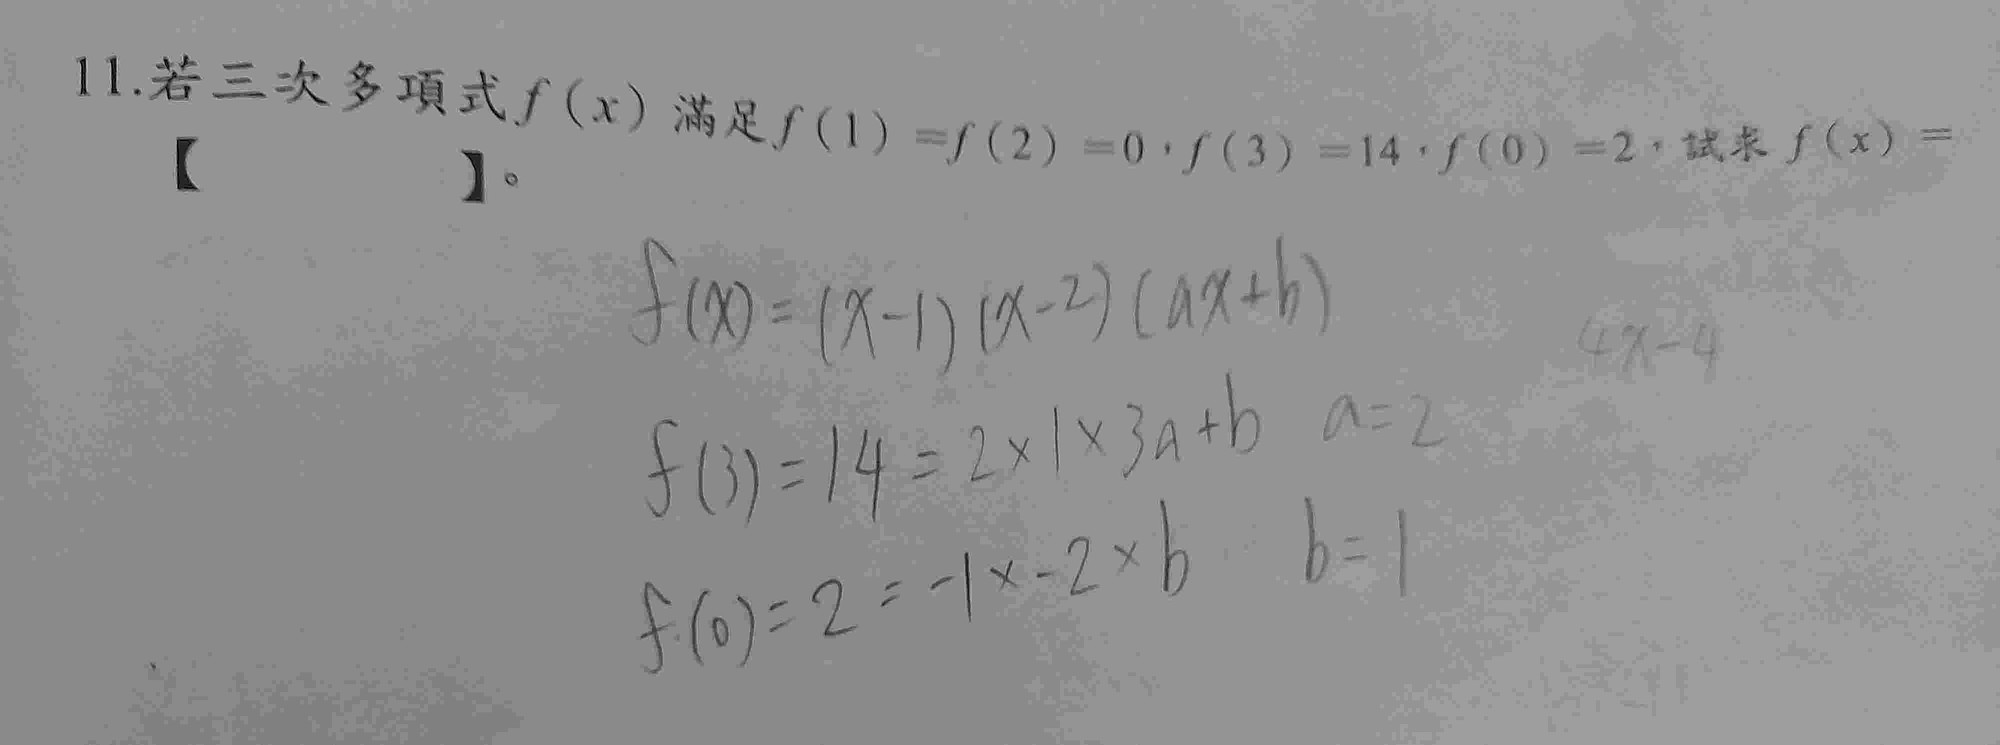 11.若三次多項式f(x)滿足f(1)=f(2)=0，f(3)=14，f(0)=2，試求f(x)=
【 】。
f(x)=(x-1)(x-2)(ax+b)
4x-4
f(3)=14=2×1×3a+b a=2
f(0)=2=-1×-2×b b=1